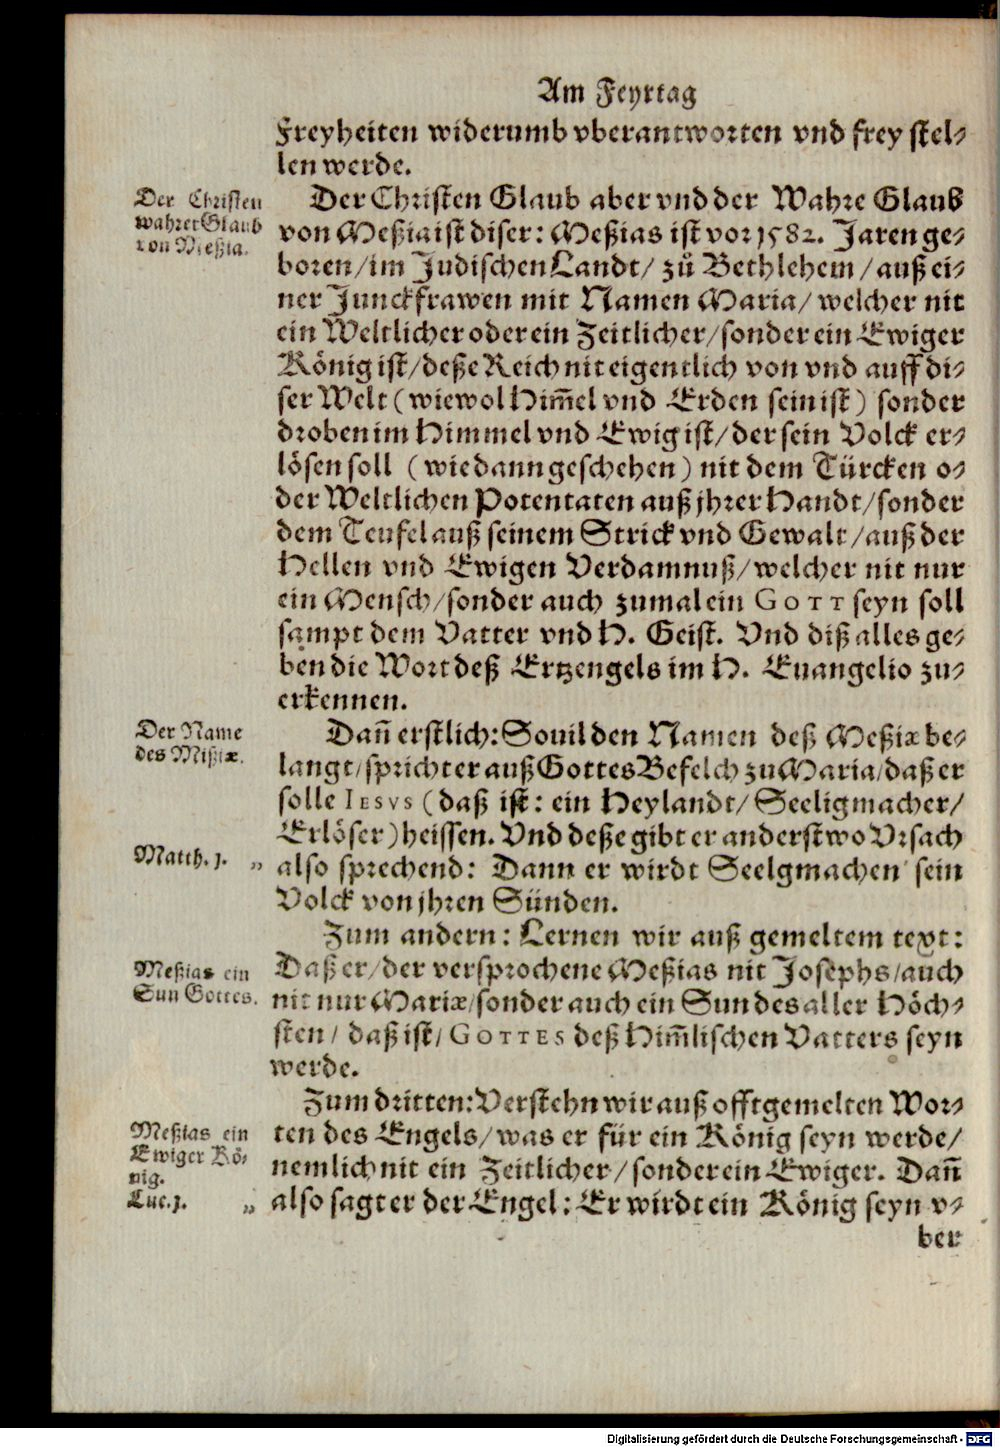 Am Feyrtag
Freyheiten widerumb vberantworten vnd frey stel-
len werde.
Der Christen
wahrer Glaub
von Meßia.
Der Christen Glaub aber vnd der Wahre Glaub
von Meßia ist diser: Meßias ist vor 1582. Jaren ge-
boren/ im Judischen Landt/ zů Bethlehem/ auß ei-
ner Junckfrawen mit Namen Maria/ welcher nit
ein Weltlicher oder ein Zeitlicher/ sonder ein Ewiger
König ist/ deße Reich nit eigentlich von vnd auff di-
ser Welt (wiewol Him̃el vnd Erden sein ist) sonder
droben im Himmel vnd Ewig ist/ der sein Volck er-
lösen soll (wie dann geschehen) nit dem Türcken o-
der Weltlichen Potentaten auß jhrer Handt/ sonder
dem Teufel auß seinem Strick vnd Gewalt/ auß der
Hellen vnd Ewigen Verdamnuß/ welcher nit nur
ein Mensch/ sonder auch zumal ein GOTT seyn soll
sampt dem Vatter vnd H. Geist. Vnd diß alles ge-
ben die Wort deß Ertzengels im H. Euangelio zu-
erkennen.
Der Name
des Mißiæ.
Dañ erstlich: Souil den Namen deß Meßiæ be-
langt/ spricht er auß Gottes Befelch zu Maria/ daß er
solle IESVS (daß ist: ein Heylandt/ Seeligmacher/
Erlöser) heissen. Vnd deße gibt er anderstwo Vrsach
Matth. 1. „
also sprechend: Dann er wirdt Seelgmachen sein
Volck von jhren Sünden.
Zum andern: Lernen wir auß gemeltem text:
Meßias ein
Sun Gottes.
Daß er/ der versprochene Meßias nit Josephs/ auch
nit nur Mariæ/ sonder auch ein Sun des aller Höch-
sten/ daß ist/ GOTTES deß Him̃lischen Vatters seyn
werde.
Zum dritten: Verstehn wir auß offtgemelten Wor-
Meßias ein
Ewiger Kö-
nig.
Luc. 1. „
ten des Engels/ was er für ein König seyn werde/
nemlich nit ein Zeitlicher/ sonder ein Ewiger. Dañ
also sagt er der Engel: Er wirdt ein König seyn v-
ber
Digitalisierung gefördert durch die Deutsche Forschungsgemeinschaft - DFG